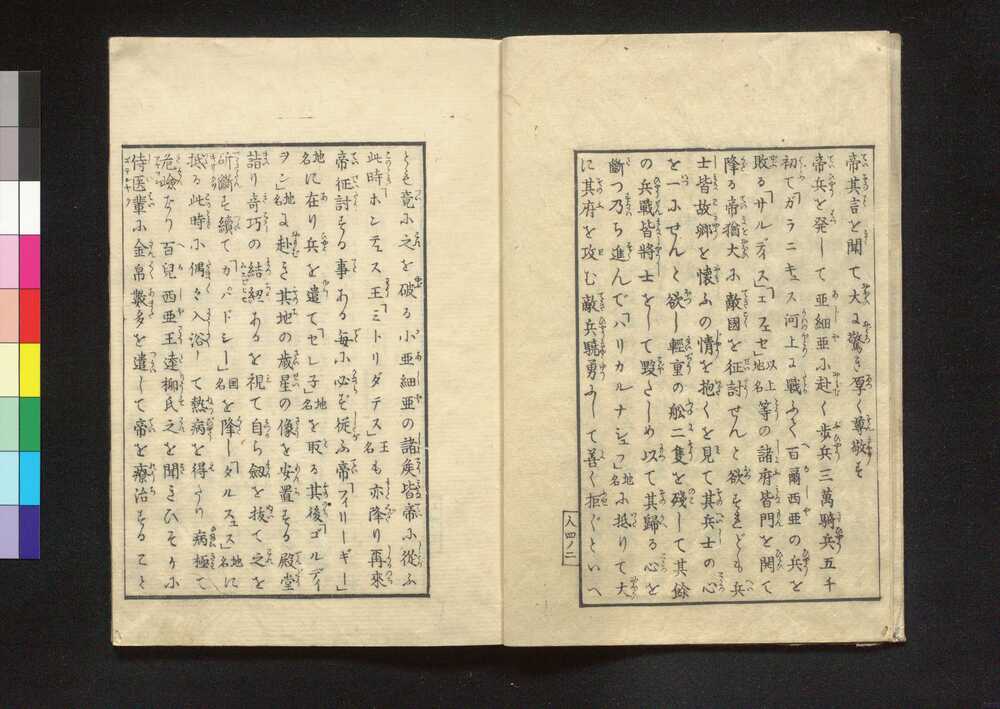 帝其言を聞て大に驚き厚く尊敬を
帝兵を発して亜細亜に赴く歩兵三萬騎兵五千
初て「ガラニキュス河上に戰ふて百爾西亜の兵を
敗る「サルディス」「エフェセ」以上地名等の諸府皆門を開て
降る帝猶大に敵國を征討せんと欲すれども兵
士皆故郷を懐ふの情を抱くを見て其兵士の心
を一にせんと欲し輕重の舩二隻を残して其餘
の兵戰皆將士をして毀さしめ以て其歸る心を
斷つ乃ち進んで「ハリカルナシュス」地名に抵りて大
に其府を攻む敵兵驍勇にして善く拒ぐといへ
人四ノ二
とも竟に之を破る小亜細亜の諸矦皆帝に從ふ
此時「ホンデュス王「ミトリダテス」王名も亦降り再來
帝征討する事ある毎に必ず從ふ帝「フィリーギー」
地名に在り兵を遣て「セレ」子地名を取る其後「ゴルディ
ヲン」地名に赴き其地の歳星の像を安置する殿堂
詣り奇巧の結紐あるを視て自ら劔を抜て之を
斫斷す續て「カパドシー」国名を降し「タルスュス」地名に
抵る此時に偶々入浴して熱病を得たり病極て
危嶮なり百兒西亜王達柳氏之を聞きひそかに
侍医輩に金帛数多を遣して帝を療治すること